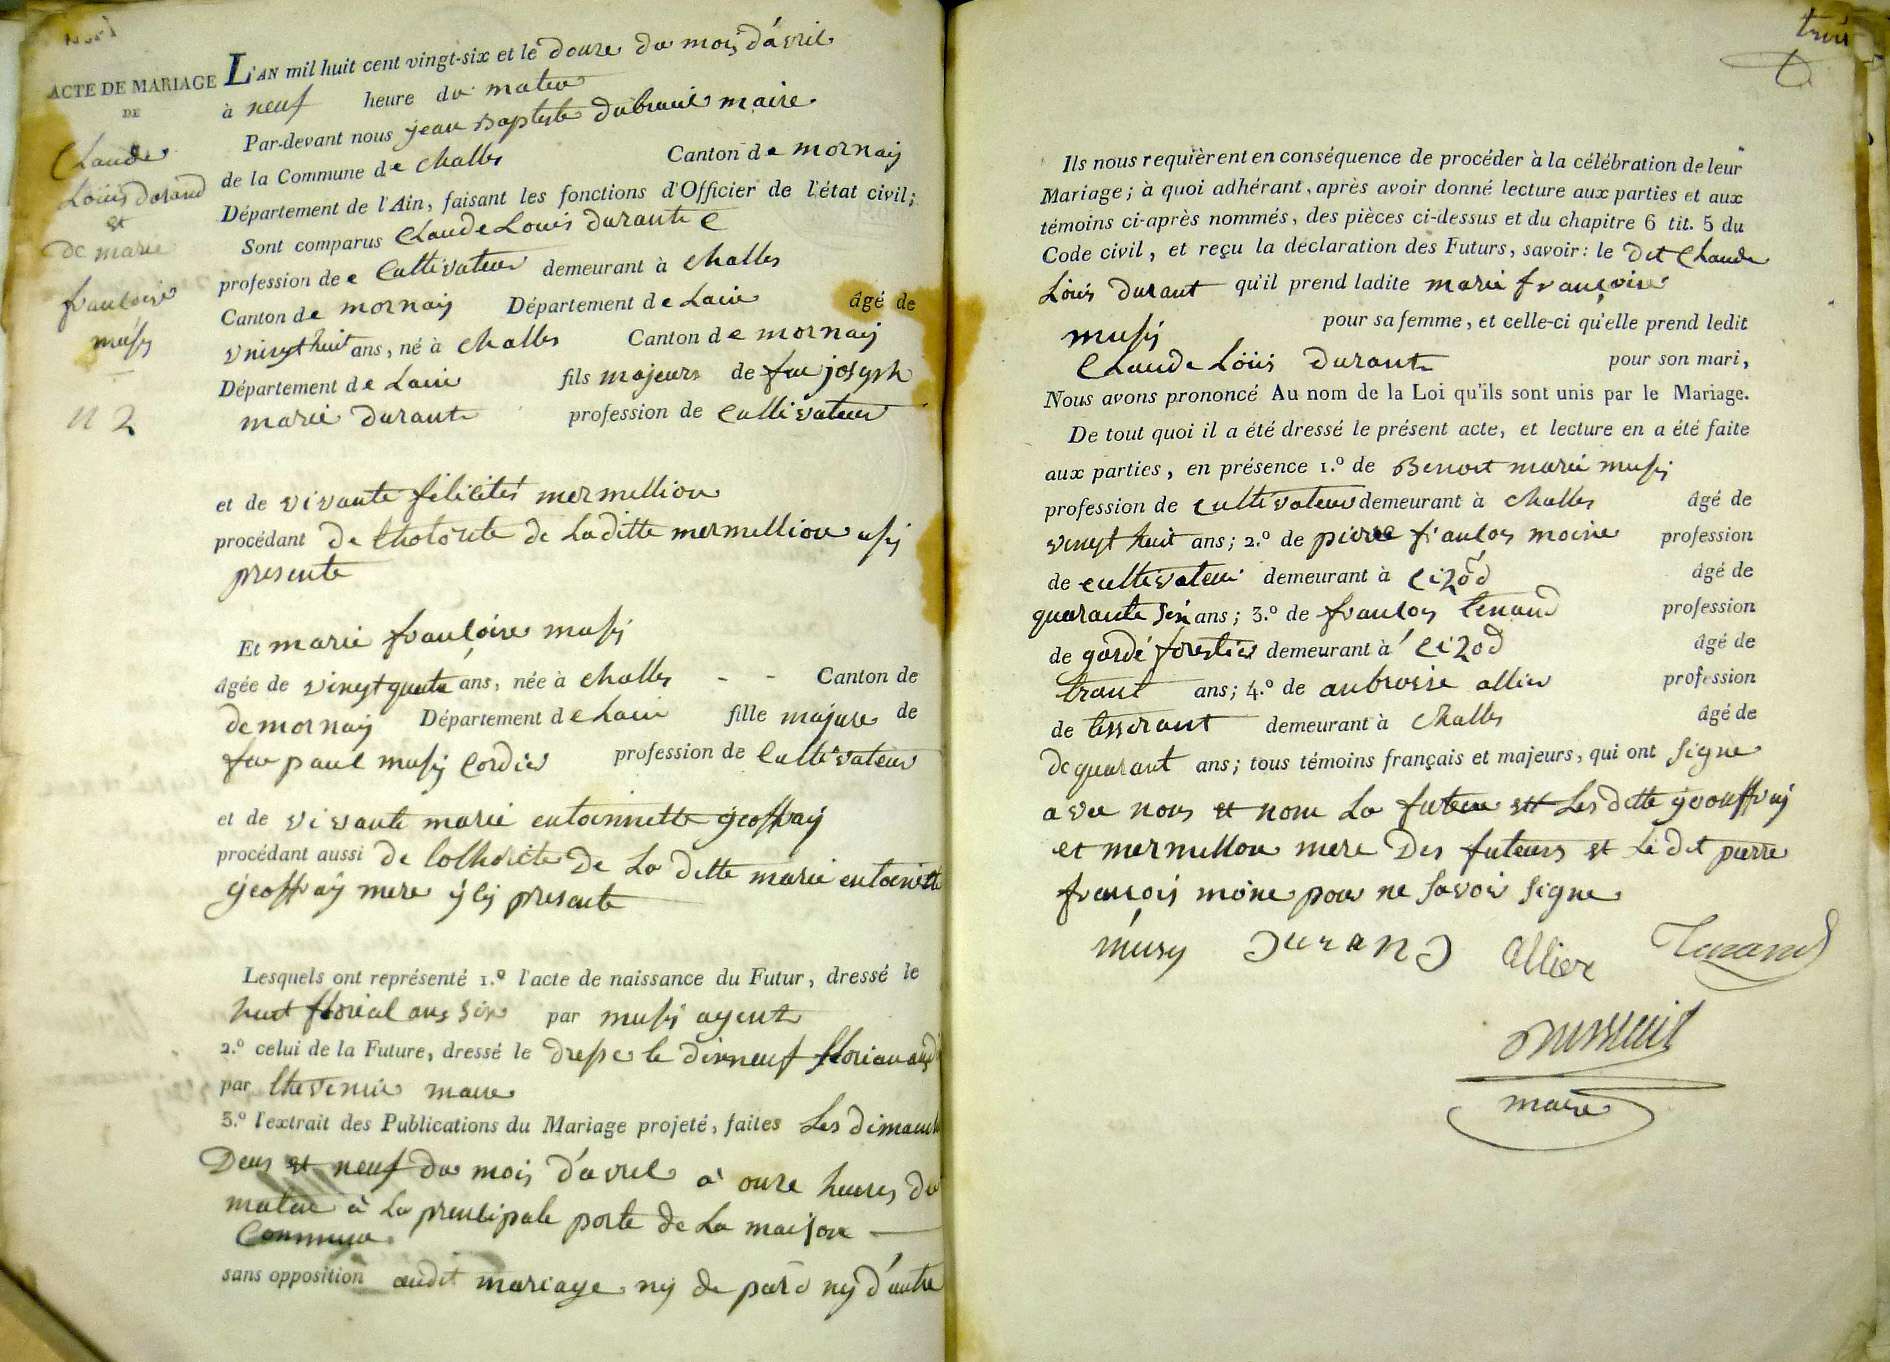 ACTE DE MARIAGE
DE
Claude
Louis durand
et
de marie
francoise
musy
N 2
L'AN mil huit cent vingt-six et le douze du mois d'avril
à neuf heure du matin
Par-devant nous jean Baptiste dubreuil maire
de la Commune de challes Canton de mornay
Département de l'Ain, faisant les fonctions d'Officier de l'état civil;
Sont comparus Claude Louis durant
profession de cultivateur demeurant à challes
Canton de mornay Département de Lain âgé de
vningt huit ans, né à challes Canton de mornay
Département de Lain fils majeurs de feu joseph
marie durant profession de cultivateur
et de vivante félicités mermillion
procédant de lhotorite de Laditte mermillion
presente
Et marie francoise musy
âgée de vingt quatre ans, née à challes - - Canton de
de mornay Département de Lain fille majure de
feu paul musy cordier profession de Cultivateur
et de vivante marie entoinnette geoffray
procédant aussi de De La ditte marie entoinette
geoffray mere presente
Lesquels ont représenté 1.º l'acte de naissance du Futur, dressé le
huit floréal ans six par musy agent
2.º celui de la Future, dressé le dresse le dixneuf
par thevenin maire
3.º l'extrait des Publications du Mariage projeté, faites Les dimanch
Deus et neuf du mois d'avril à onze heures du
matin à La principale porte de La maison
Commune
sans opposition audit mariage ny de pard ny d'autre
trois
Ils nous requièrent en conséquence de procéder à la célébration de leur
Mariage; à quoi adhérant, après avoir donné lecture aux parties et aux
témoins ci-après nommés, des pièces ci-dessus et du chapitre 6 tit. 5 du
Code civil, et reçu la déclaration des Futurs, savoir: le dit Claude
Louis durant qu'il prend ladite marie françoise
musy pour sa femme, et celle-ci qu'elle prend ledit
Claude Louis durant pour son mari,
Nous avons prononcé Au nom de la Loi qu'ils sont unis par le Mariage.
De tout quoi il a été dressé le présent acte, et lecture en a été faite
aux parties, en présence 1.º de Benoit marie musy
profession de cultivateur demeurant à challes âgé de
vingt huit ans; 2.º de pierre francois moine profession
de cultivateur demeurant à Cizod âgé de
quarante six ans; 3.º de francois tenand profession
de gardé forestier demeurant à Cizod âgé de
trant ans; 4.º de anbroise allier profession
de tisserant demeurant à challes âgé de
de quarant ans; tous témoins français et majeurs, qui ont signe
avec nous et nom La future et Les ditte geouffray
et mermillon mere Des futeurs et Le dit pierre
françois moine pour ne savoir signe
musy DURAND allier Tenand
dubreuil
maire